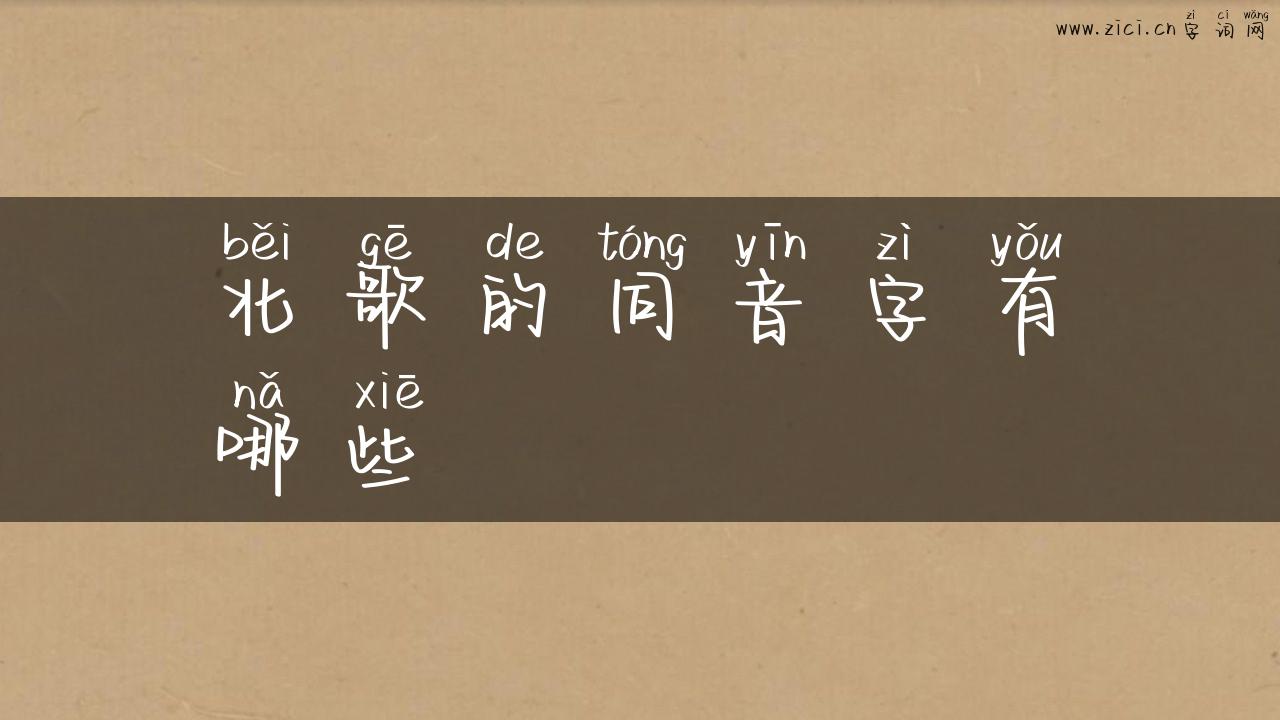 zì cí wǎng
www.zici.cn 字词网
běi gē de tóng yīn zì yǒu
北歌的同音字有
nǎ xiē
哪些